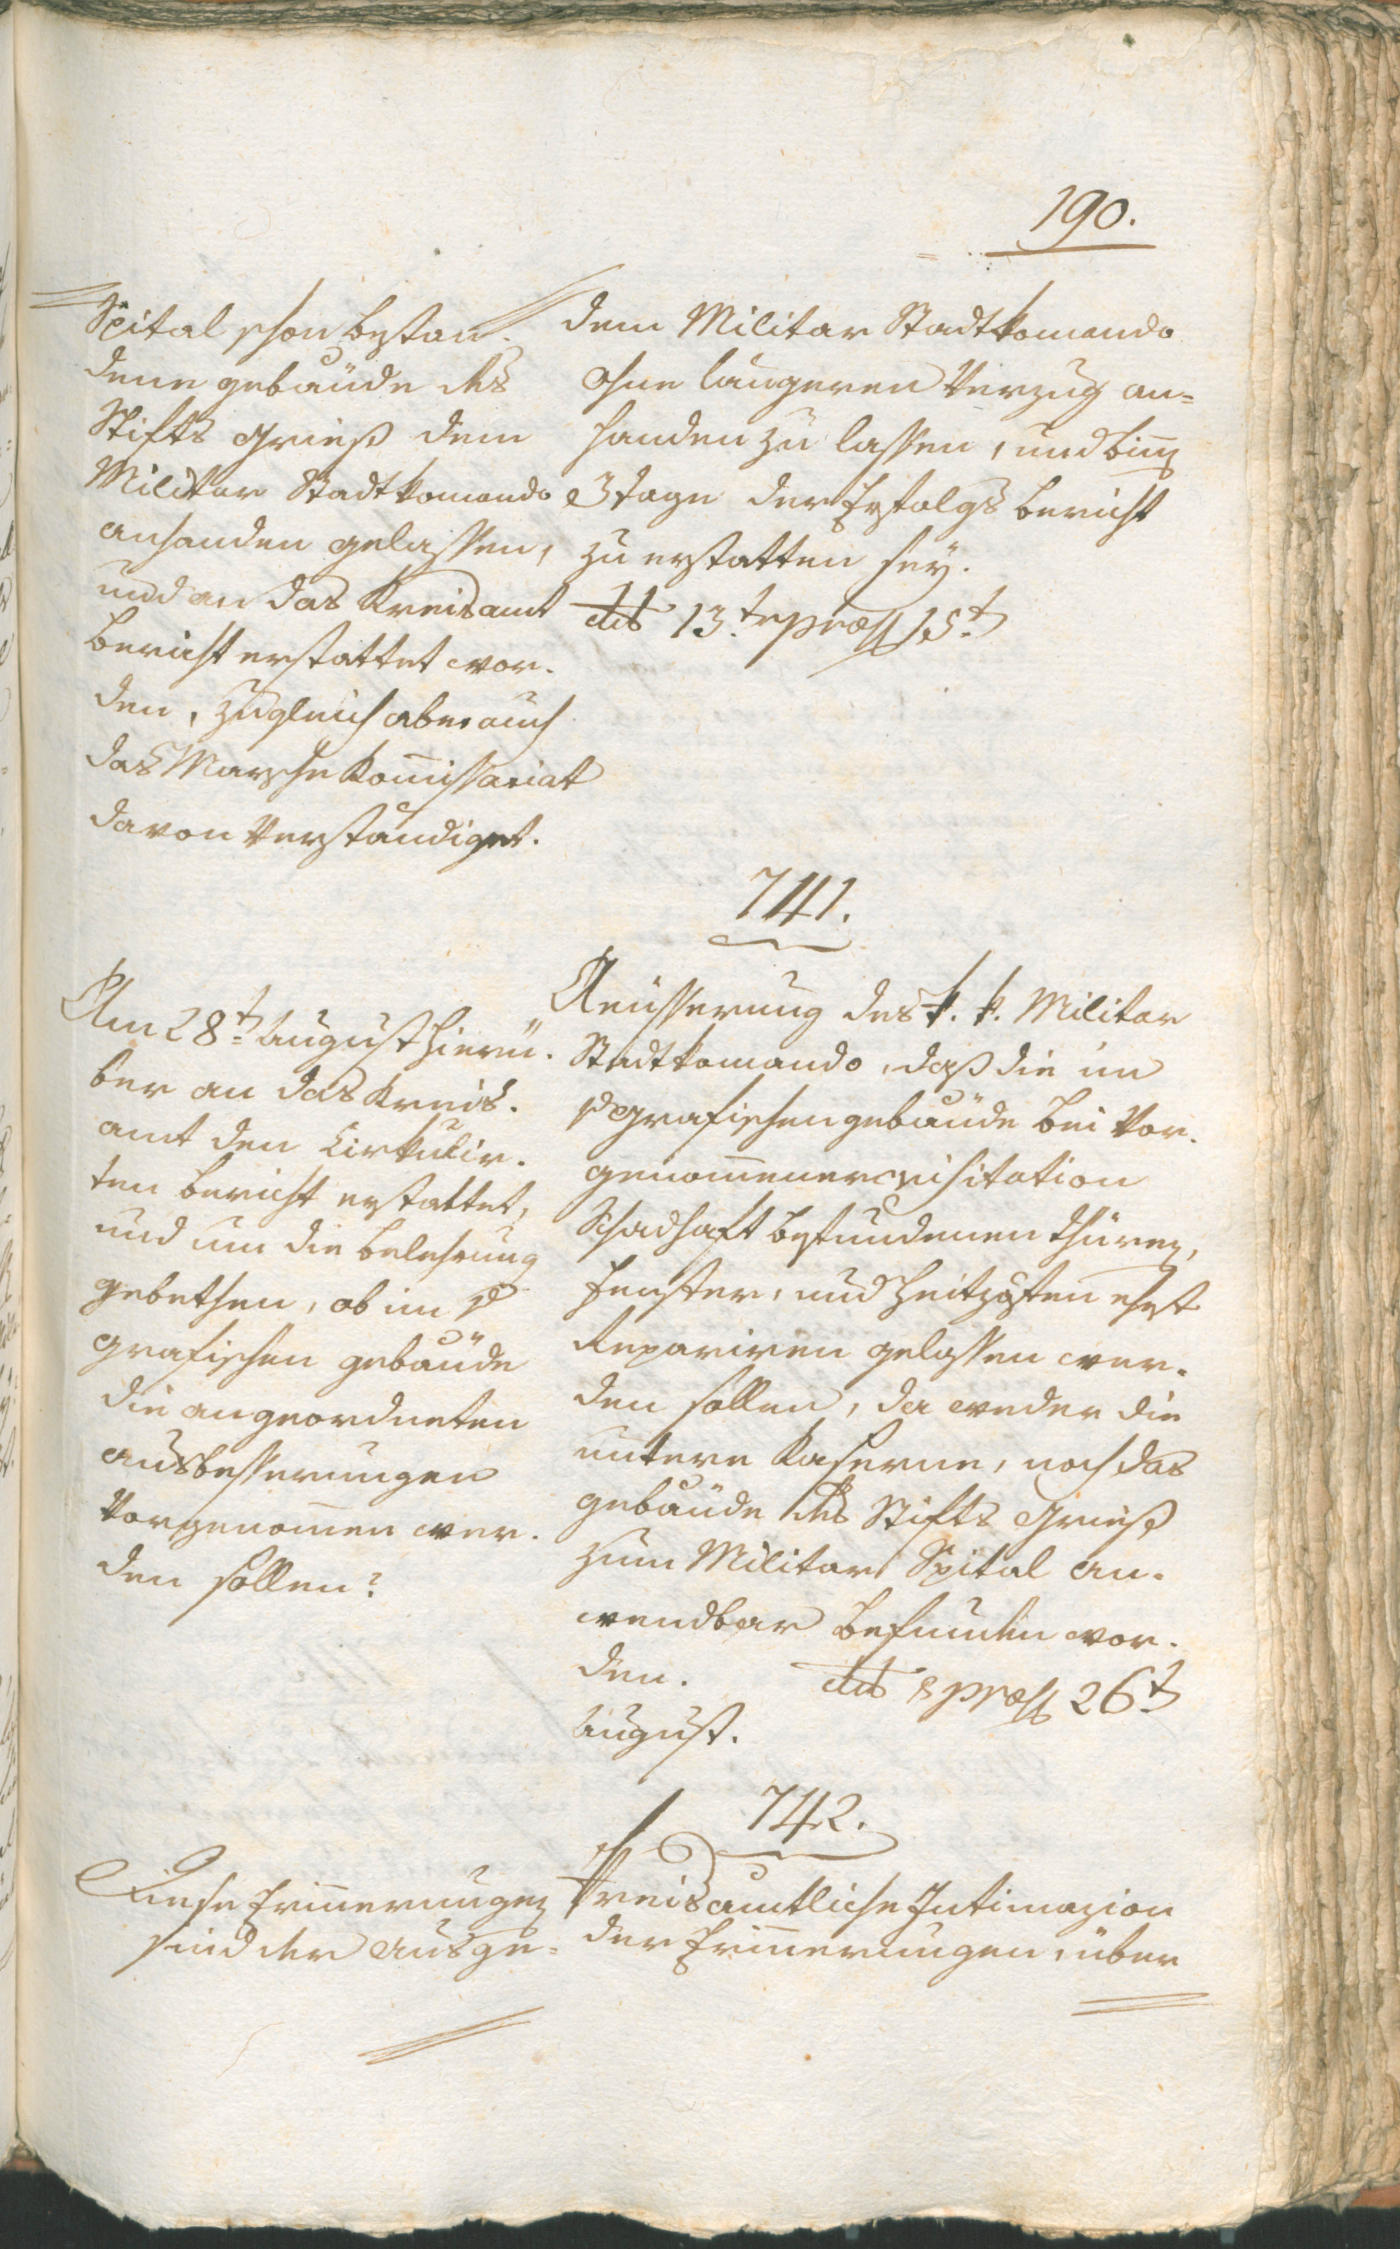 190.
Spital schon bestan.
dene gebäude des
Stifts Grieß dem
Militar Stadtkomando
anhanden gelassen,
und an das Kreisamt
bericht erstattet wor.
den, zugleich aber auch
das Marsche Kom̄issariat
davon Verständiget.
dem Militar Stadtkomando
ohne längeren Verzug an=
handen zu lassen, und biñ
3 tage der Erfolgs bericht
zu erstatten sey.
dtto 13.t præs 15.t
741.
Am 28t August hierü.
ber an das Kreis.
amt den Cirkulir.
ten bericht erstattet,
und um die belehrung
gebethen, ob im
grafischen gebäude
die angeordneten
ausbesserungen
Vorgenom̄en wer.
den sollen?
Aeusserung des k. k. Militar
Stadtkomando, daß die im
grafischen gebäude bei Vor.
genom̄ener visitation
Schadhaft befundenen thüren,
fenster, und
Repariren gelassen wer.
den sollen, da weder die
untere Kaserne, noch das
gebäude des Stifts Grieß
zum Militar Spital an.
wendbar befunden wor.
den. dtto & præs 26t
August.
742.
Diese Erinnerungen
sind der ausge=
Kreisamtliche Intimazion
der Erinnerungen, über